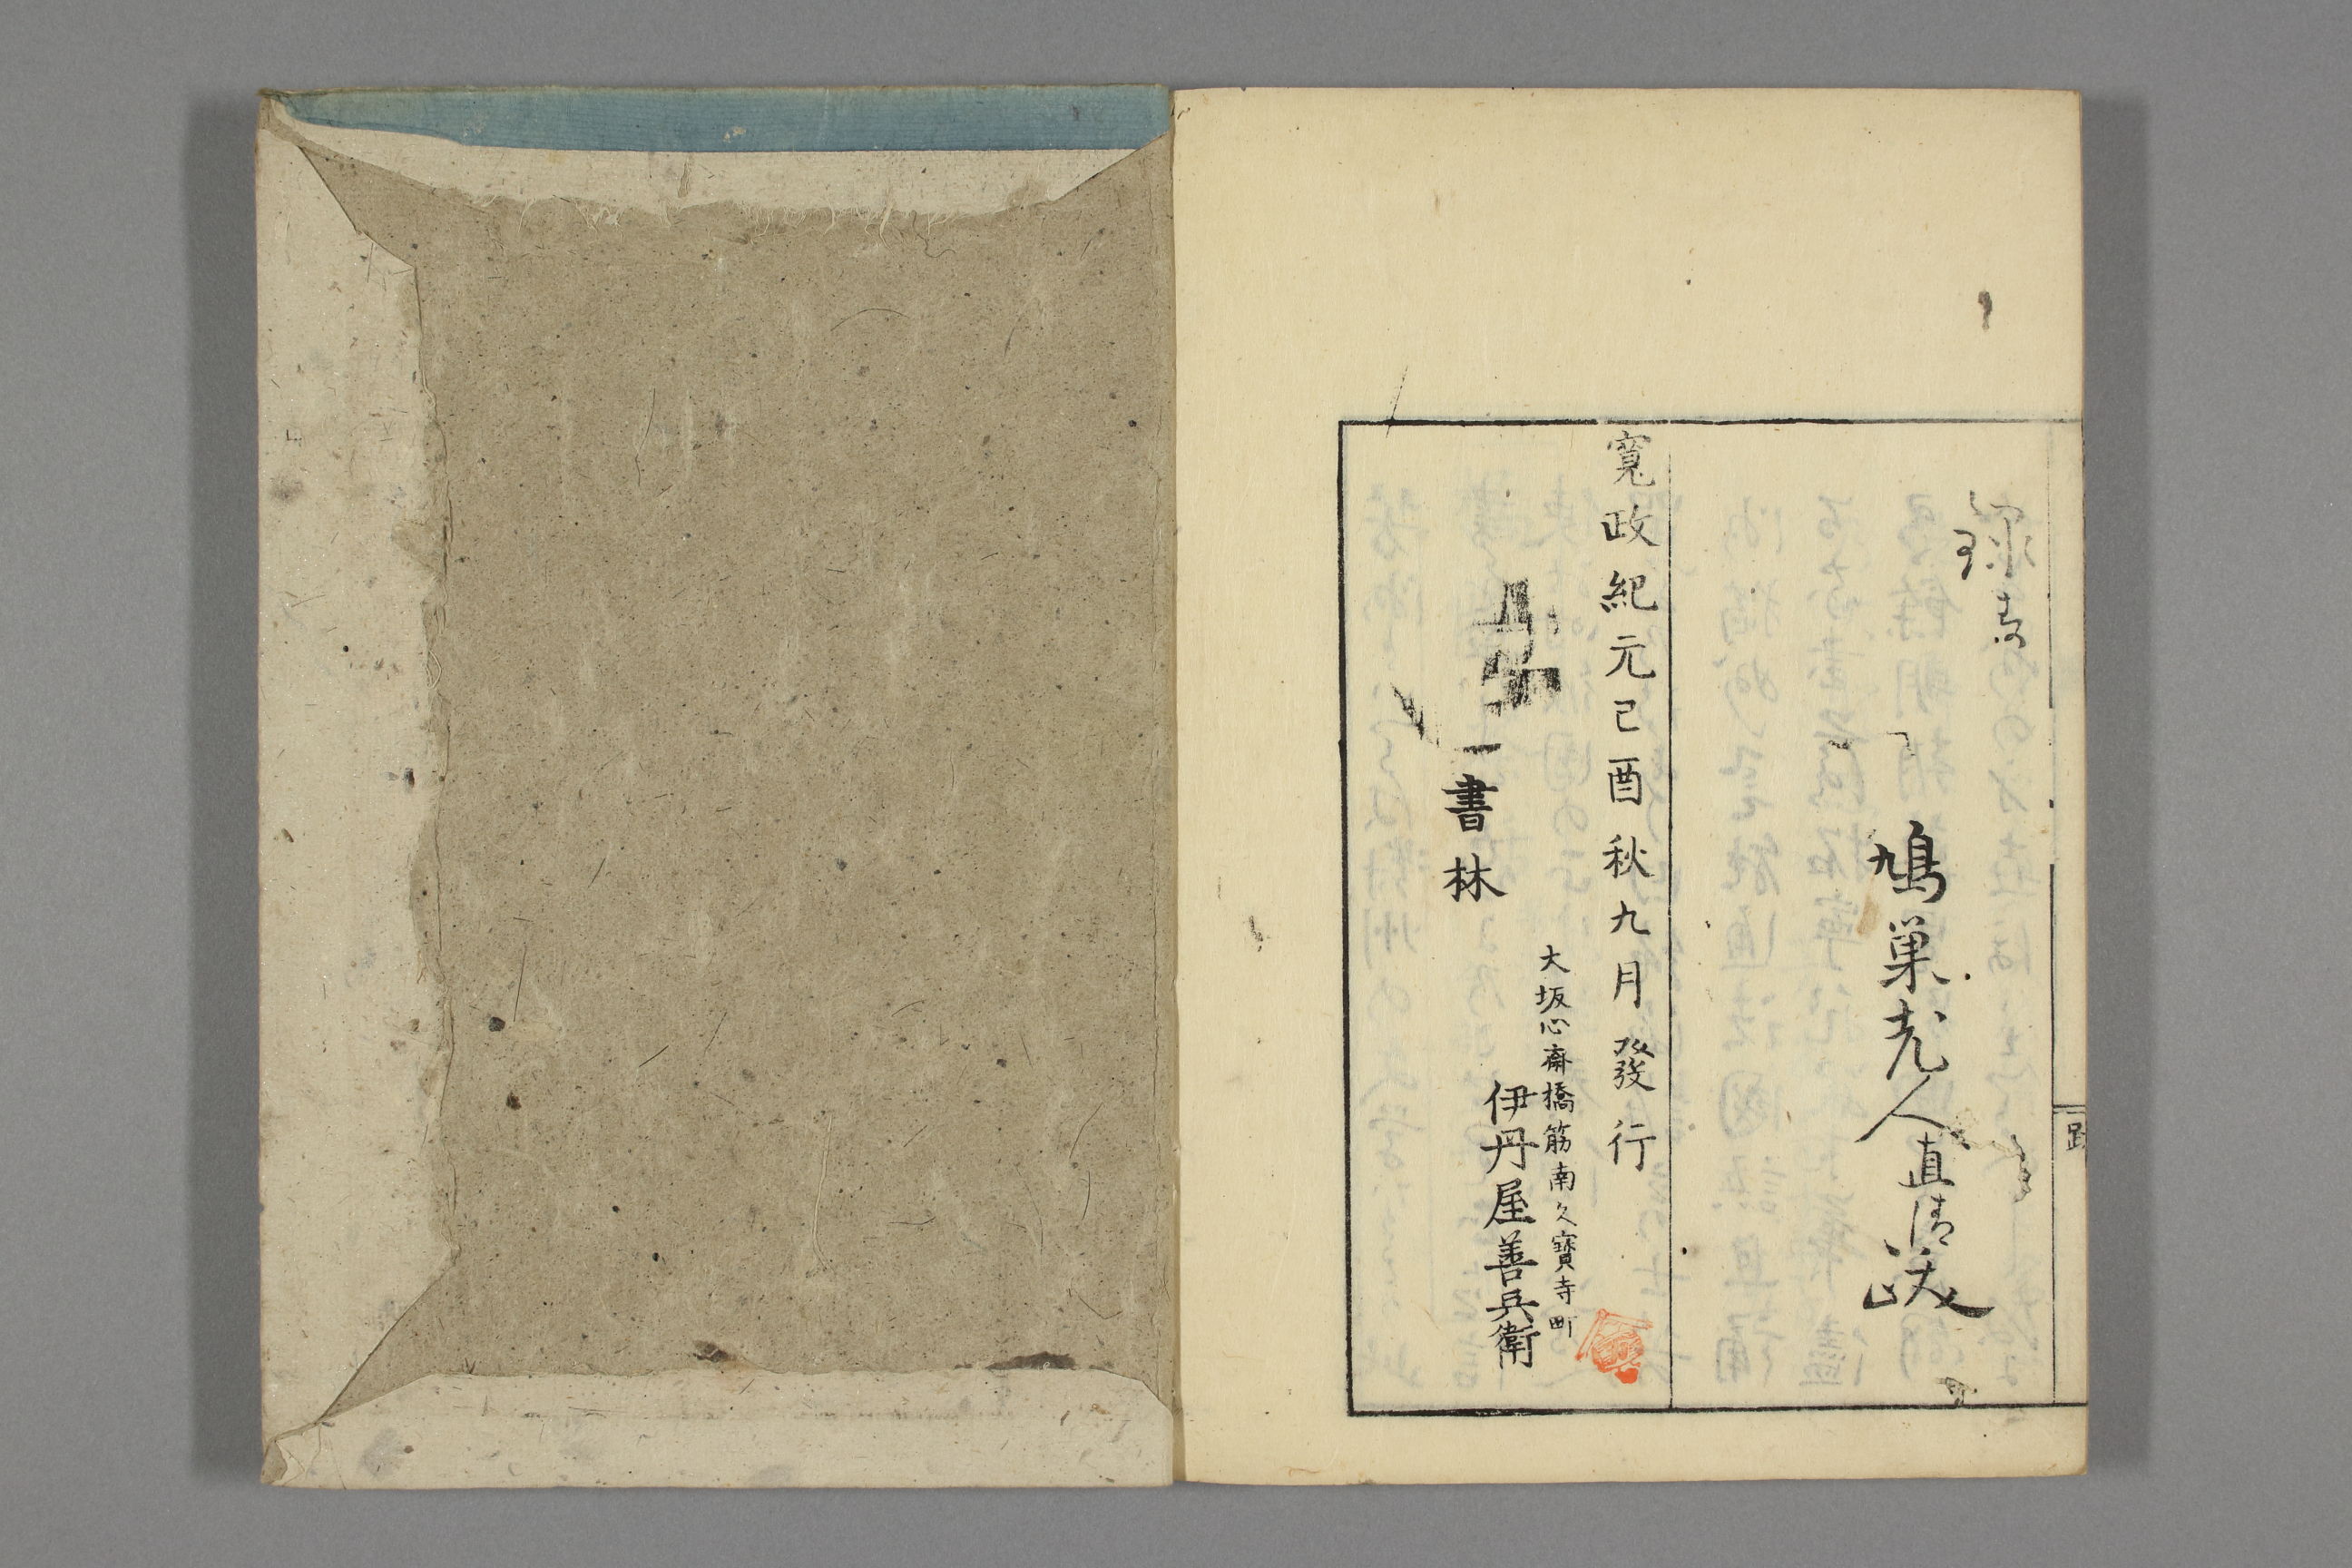 鳩巣老人直清跋
寛政紀元己酉秋九月發行
大坂心斎橋筋南久寶寺町
書林
伊丹屋善兵衛
跋